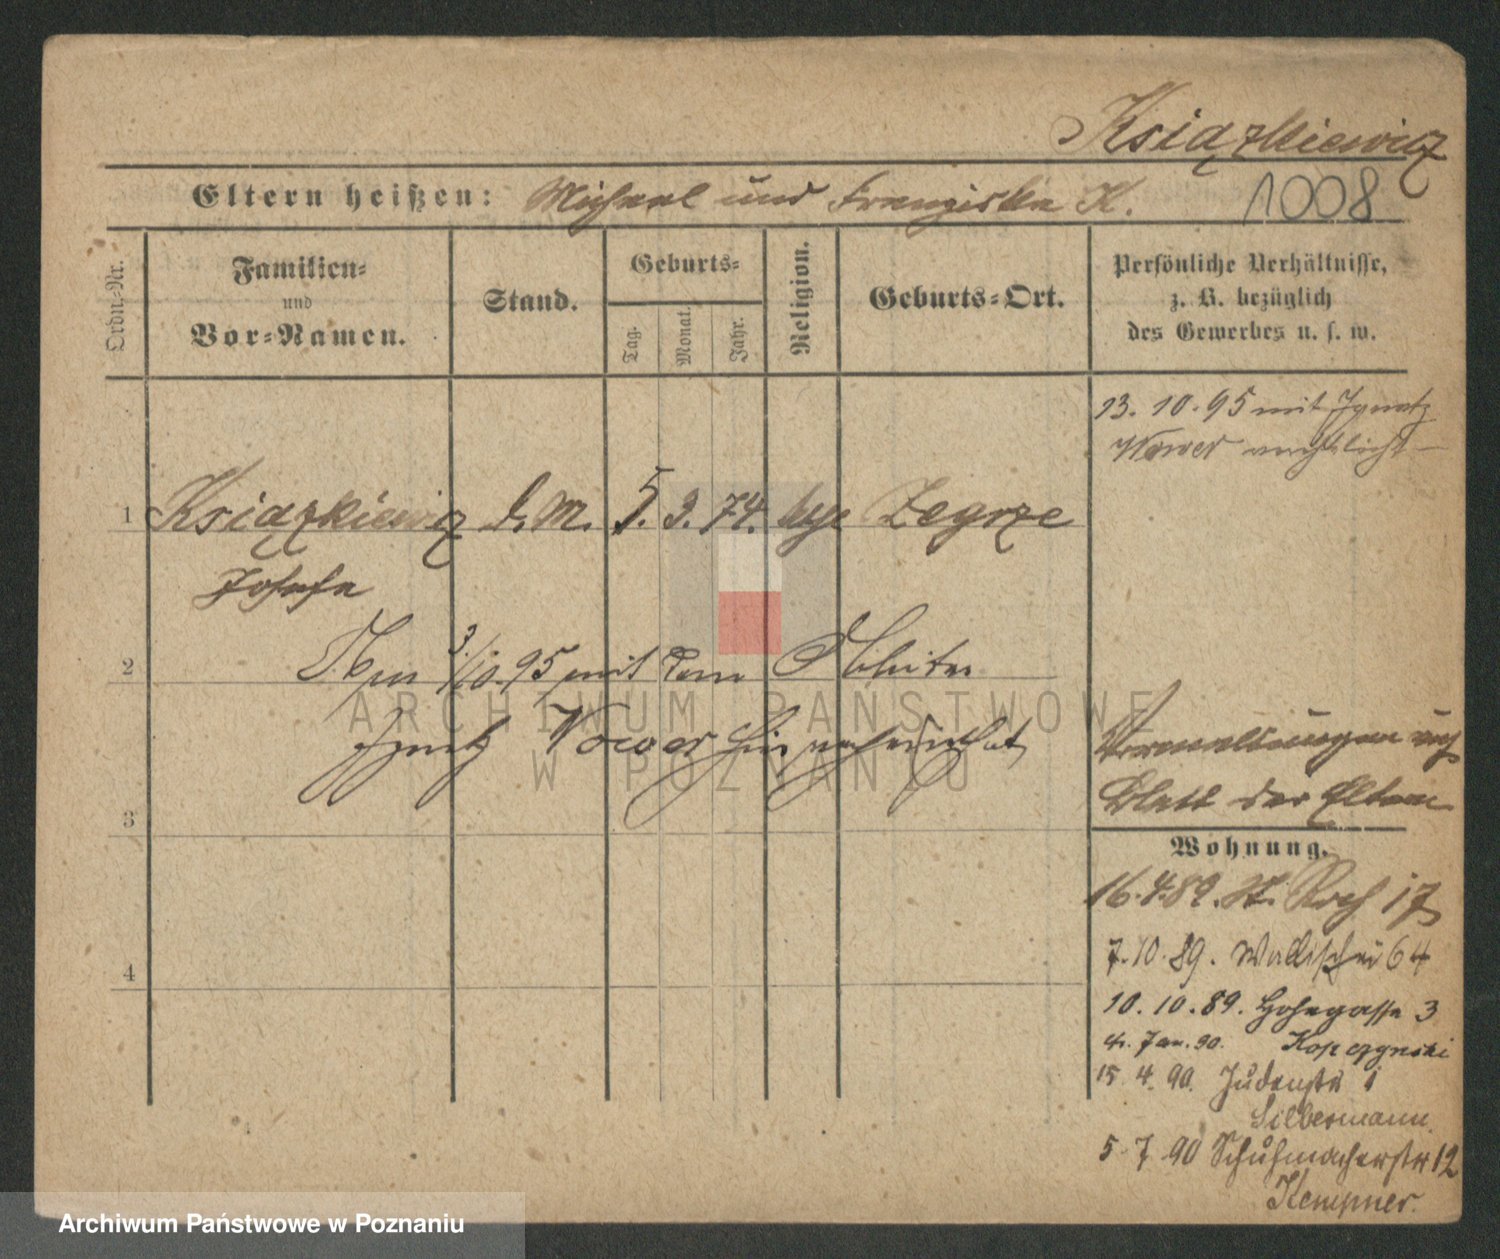 Książkiewicz
Eltern heißen: Michael und Franziska K.
1008
Ordn.-Nr.
Familien-
und
Vor-Namen.
Stand.
Geburts-
Tag.
Monat.
Jahr.
Religion.
Geburts-Ort.
Persönliche Verhältnisse,
z. B. bezüglich
des Gewerbes u. s. w.
13. 10. 95 mit Ignatz
Wower verehelicht
1 Książkiewicz d. M. 5. 3. 74. Zegrze
Josefa
2 3./10. 95 mit dem Arbeiter
Ignatz Wower hier verheirathet
3
4
Vermeldungen auf
Blatt der Eltern
Wohnung.
16. 4. 89. St. Roch 17
7. 10. 89. Wallischei 64
10. 10. 89. Hohegasse 3
4. Jan. 90. Kopczynski
15 4. 90. Judenstr 1
Silbermann.
5 7 90 Schuhmacherstr 12
Kempner.
ARCHIWUM PAŃSTWOWE
W POZNANIU
Archiwum Państwowe w Poznaniu